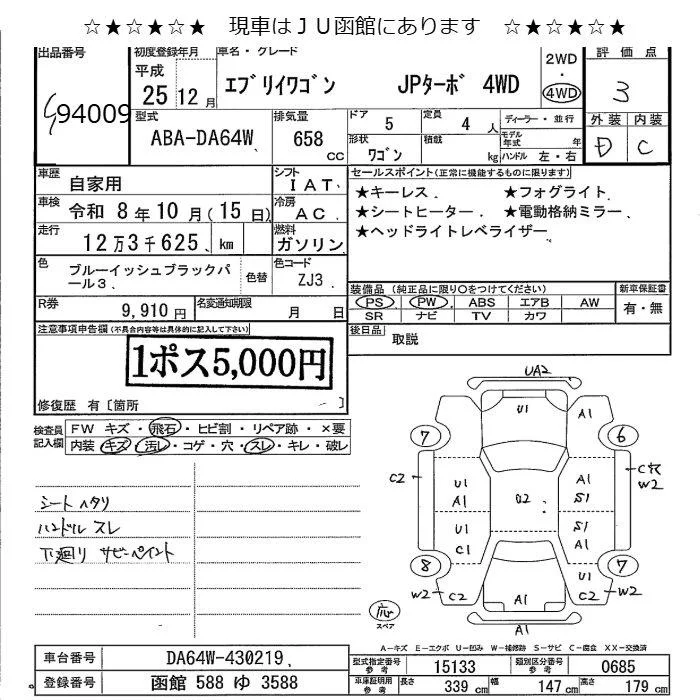 ☆★☆★☆★ 現車はＪＵ函館にあります ☆★☆★☆★
出品番号 初度登録年月 車名・グレード 2WD ・ 4WD 評価点
94009 平成 25 12月 エブリイワゴン JPターボ 4WD 3
型式 排気量 ドア 定員 ディーラー・並行 外装 内装
ABA-DA64W 658 cc 5 4 人 モデル年式 年 D C
形状 ワゴン 積載 kg ハンドル 左・右
車歴 自家用 シフト IAT セールスポイント(正常に機能するものに限ります)
車検 令和 8年10月(15日) 冷房 AC ★キーレス ★フォグライト
★シートヒーター ★電動格納ミラー
走行 12万3千625 km 燃料 ガソリン ★ヘッドライトレベライザー
色 ブルーイッシュブラックパール3 色替 色コード ZJ3
装備品 (純正品に限り○をつけてください) 新車保証書
R券 9,910円 名変通知期限 月 日 PS PW ABS エアB AW 有・無
SR ナビ TV カワ
注意事項申告欄(不具合内容等は具体的に記入して下さい) 後日品 取説
1ポス5,000円
修復歴 有〔箇所 〕
検査員記入欄 FW キズ・飛石・ヒビ割・リペア跡・×要
内装 キズ・汚レ・コゲ・穴・スレ・キレ・破レ
シートヘタリ
ハンドルスレ
下廻りサビペイント
UA2
U1 A1
7 6
C2 C穴 W2
U1 A1 U2 A1 S1
U1 C1 S1 A1
8 7
W2 C2 A1 U1 C2 W2
A1
応 スペア
A－キズ E－エクボ U－凹み W－補修跡 S－サビ C－腐食 XX－交換済
車台番号 DA64W-430219 型式指定番号 参考 15133 類別区分番号 参考 0685
登録番号 函館 588 ゆ 3588 車庫証明用 参考 長さ 339 cm 幅 147 cm 高さ 179 cm